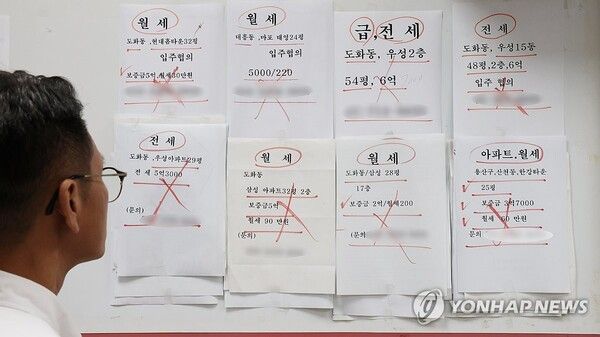 월 세
도화동, 현대홈타운32평
입주협의
보증금5억, 월세80만원
월 세
대흥동, 마포 태영24평
입주협의
5000/220
급, 전 세
도화동, 우성2층
54평, 6억
전 세
도화동, 우성15동
48평,2층,6억
입주 협의
전 세
도화동, 우성아파트29평
전 세 5억3000
(문의)
월 세
도화동
삼성 아파트32평 2층
보증금5억
월세 90 만원
(문의)
월 세
도화동/삼성 28평
17층
보증금 2억/월세200
(문의)
아파트.월세
용산구,산천동,한강타운
25평
보증금 3억7000
월세 만원
문의
YONHAPNEWS